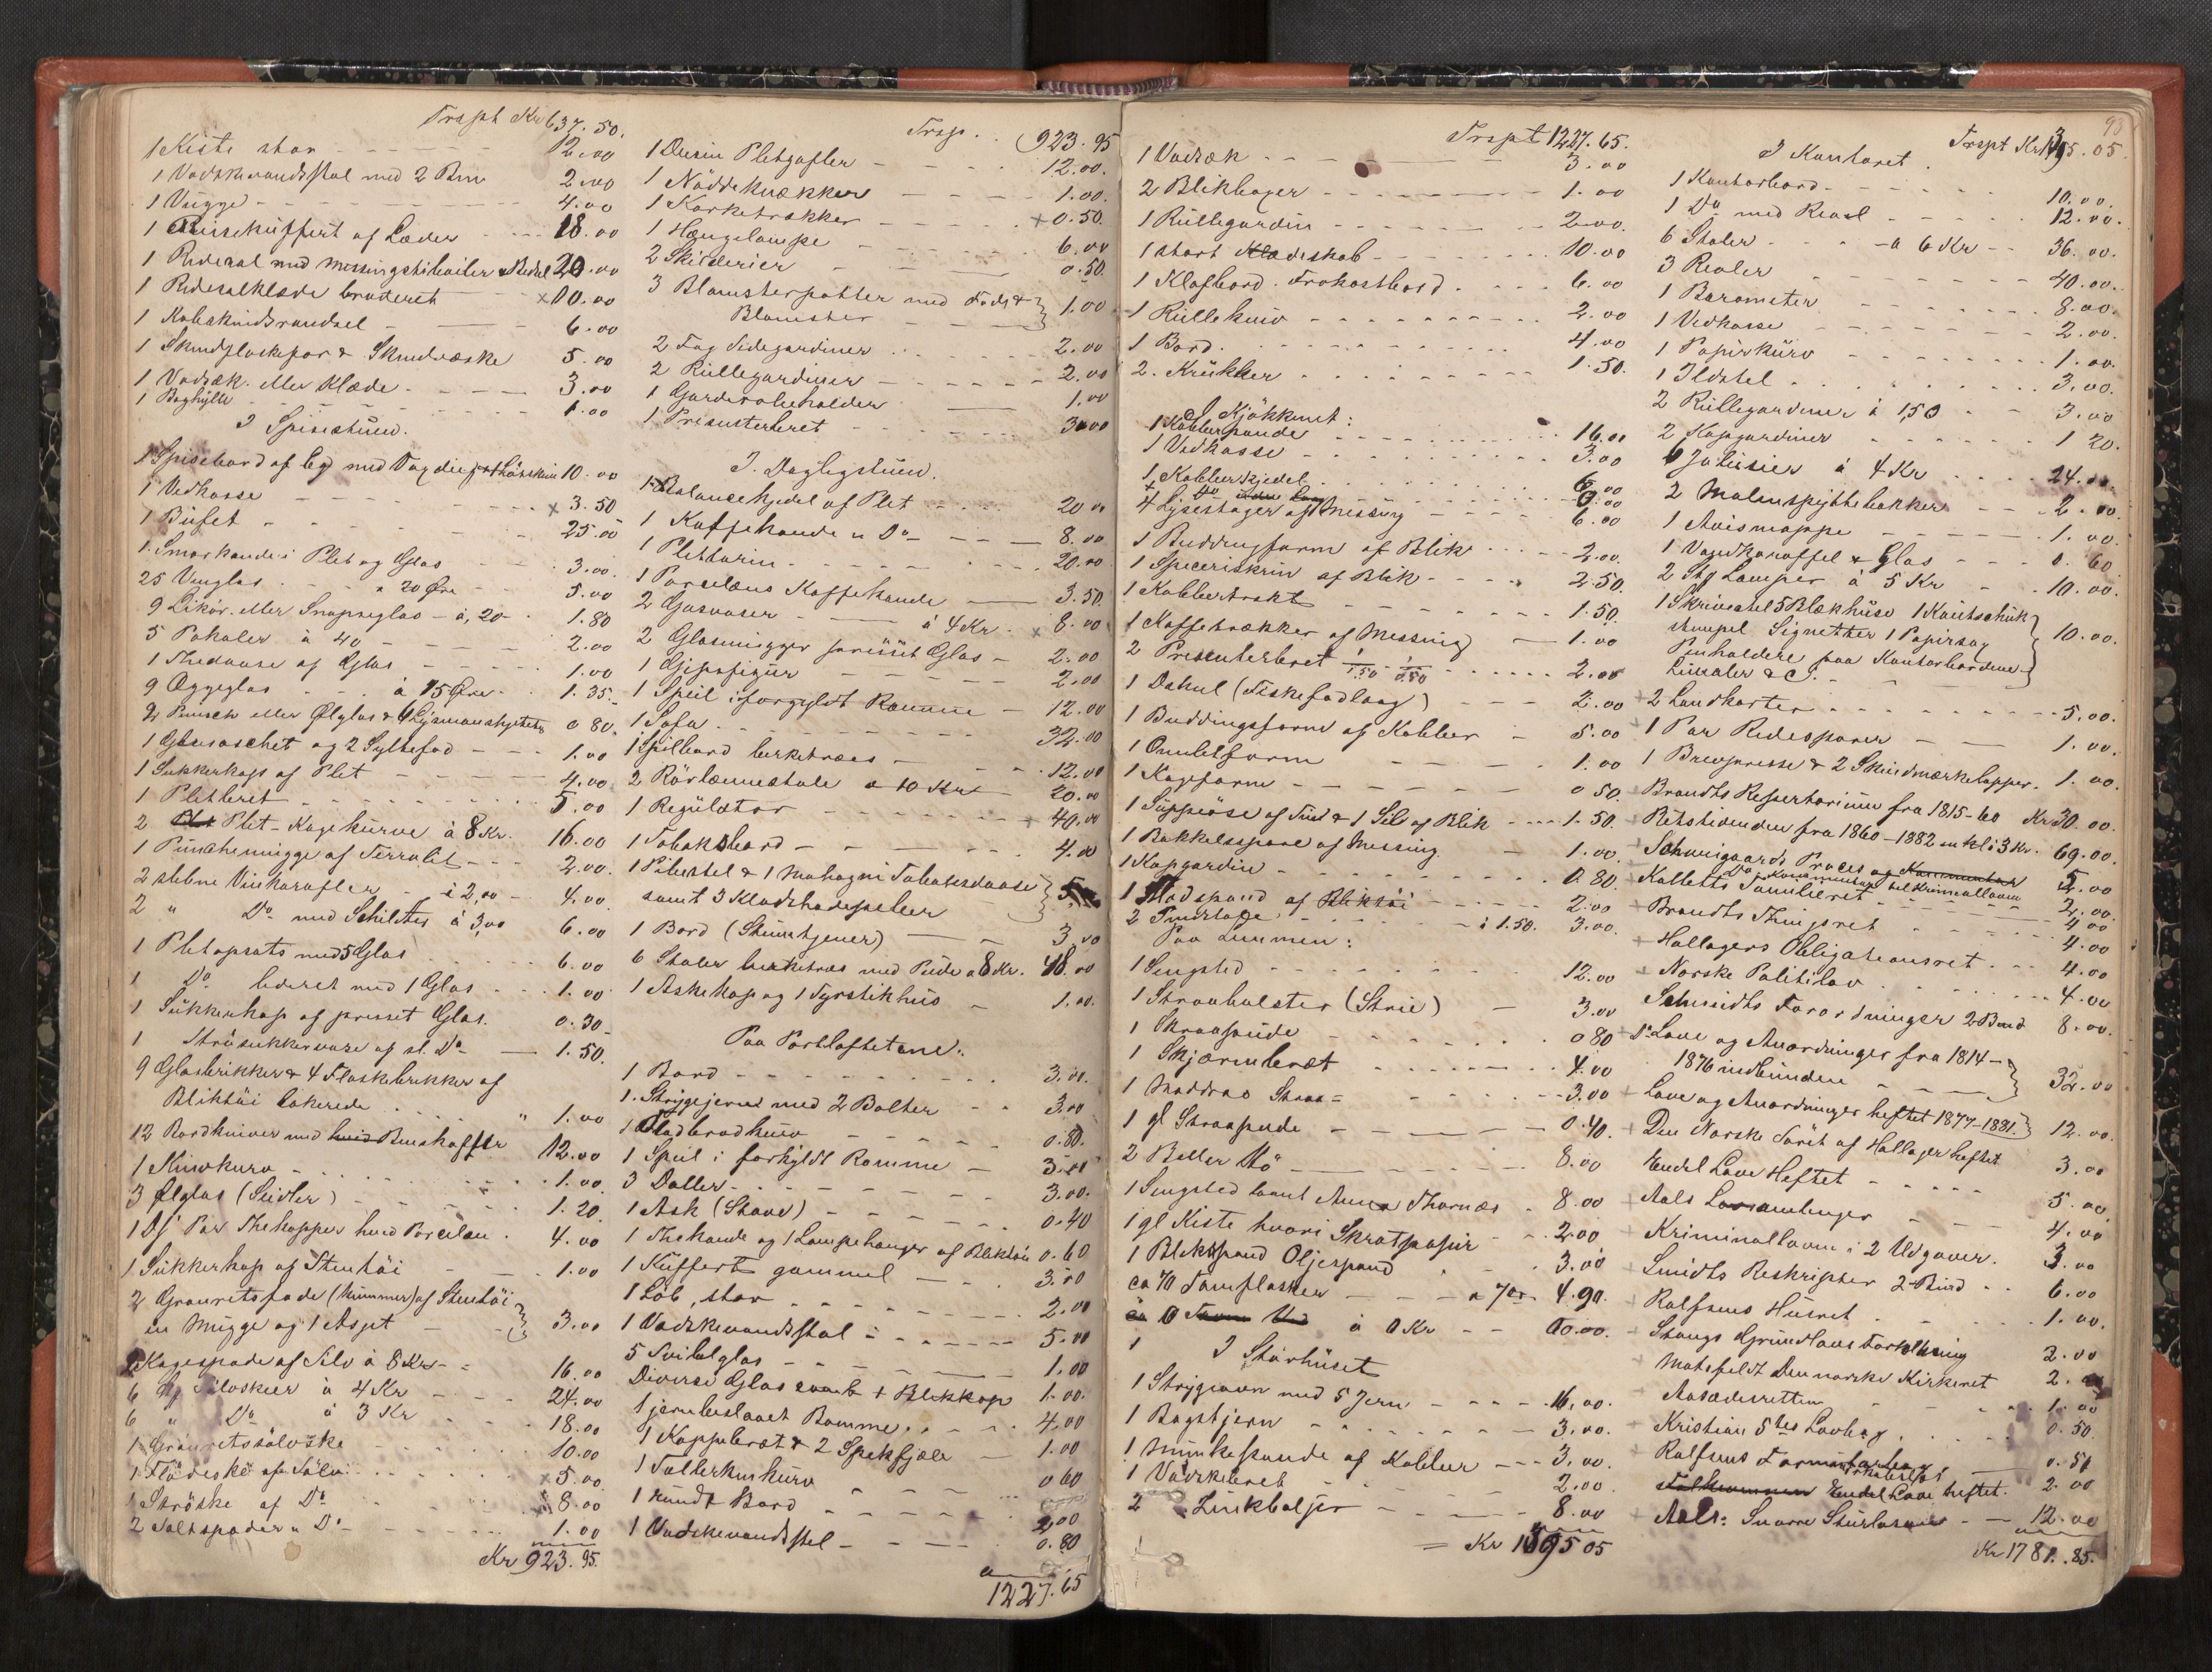 Trspt Kr 637.50.
1 Kiste stor 12.00
1 Vaskevandsstol med 2 Brn 2.00
1 Vugge 4.00
1 Reisekuffert af Læder 18.00
1 Ridesal med Messingstibøiler & Bidsel 20.00
1 Ridesalklæde broderet x10.00
1 Kobeskindsrandsel 6.00
1 Skindflaskefor & Skindvæske 5.00
1 Vadsæk eller Klæde 3.00
1 Boghylle 1.00
I Spisestuen.
1 Spisebord af Eg med Voxdug 10.00
1 Vedkasse x 3.50
1 Büfet 25.00
1 Smørkande i Plet og Glas 3.00.
25 Vinglas a 20 Øre 5.00
9 Likör. eller Snapseglas à, 20 1.80
5 Pokaler à 40 2.00
1 Thedaase af Glas 1.00
9 Æggeglas à 15 Øre 1.35.
2 Punsch eller Ølglas & 0.80.
1 Glasaschet og 2 Syltefad 1.00
1 Sukkerkop af Plet 4.00
1 Pletbret 5.00
2 Plet-Kagekurve à 8 Kr. 16.00
1 Punchemugge af Terralit 2.00.
2 slebne Vinkarafler à 2,00 4.00.
2 " Do med Schilter à 3,00 6.00
1 Pletopsats med 5 Glas 6.00
1 Do lederet med 1 Glas 1.00
1 Sukkerkop af presset Glas. 0.30
1 Strösukkervase af sl. Do 1.50.
9 Glasbrikker & 4 Flaskebrikker af
Bliktöi lakerede " 1.00
12 Bordkniver med Benskafter 12.00
1 Knivkurv 1.00.
3 Ølglas (Seidler) 1.20.
1 Dj Par Thekopper hvid Porcelan. 4.00
1 Sukkerkop af Stentöi 1.00
2 Grauretsfade (Kummer) af Stentöi
en Mugge og 1 Asjet 3.00
2 Kagespade af Sölv à 8 Kr 16.00
6 Sölvskeer à 4 Kr 24.00
6 " Do à 3 Kr 18.00
1 Grauretssölvske 10.00
1 Flödeske af Sölv x5.00
1 Ströske af Do 8.00
2 Saltspader " Do 1.00
Kr 923.95.
Trsp. 923.95
1 Dusin Pletgafler 12.00.
1 Nöddeknækker 1.00.
1 Korketrækker +0.50.
1 Hængelampe 6.00
2 Skilderier 0.50.
3 Blomsterpotter med Fode &
Blomster 1.00
2 Fag Sidegardiner 2.00
2 Rüllegardiner 2.00
1 Garderobeholder 1.00
1 Presenterbret 3.00
I. Daglegstuen.
1 Balancekjedel af Plet 20.00
1 Kaffekande " Do 8.00
1 Pletterin 20.00
1 Porcelæns Kaffekande 3.50.
2 Gasvaser à 4 Kr. x 8.00
2 Glasmugger presset Glas 2.00
1 Gipsfigur 2.00
1 Speil i forgyldt Ramme 12.00
1 Sofa 32.00
1 Spilbord birketræes 12.00
2 Rörlænestole a 10 Kr 20.00
1 Regülator + 40.00
1 Tobaksbord 4.00
1 Pibestel & 1 Mahogni Tobaksdaase
samt 3 Kladskadepeleer 5.
1 Bord (Stumtjener) 3.00
6 Stoler birketræs med Püde a 8 Kr. 48.00
1 Askekop og 1 Fyrstikhus 1.00.
Paa Portloftet ene.
1 Bord 3.00.
1 Strygejern med 2 Bolter 3.00
1 Fladbrødkurv 0.80.
1 Speil i forgyldt Ramme 3.00
3 Daller 3.00.
1 Ask (Stave) 0.40
1 Thekande og 1 Lampehanger af Bliktöi 0.60
1 Kuffert gammel 3.00
1 Löb, stor 2.00
1 Vaskevandsstol 5.00
5 Svibelglas 1.00
Diverse Glas samt 1 Blikkop 1.00.
1 jernbeslaaet Bomme 4.00
1 Kappebræt & 2 Spekfjæle 1.00
1 Tallerkenkurv 0.60
1 rundt Bord 2.00
1 Vaskevandsstel 0.80
1227.65
93
Trspt 1227.65.
1 Vadsæk 3.00
2 Blikbøger 1.00
1 Rüllegardin 2.00.
1 stort Klædeskab 10.00
1 Klafbord. Frokostbord 6.00
1 Rüllekurv 2.00
1 Bord. 4.00
2. Krükker 1.50.
I Kjökkenet:
1 Kobberpande 16.00
1 Vedkasse 3.00
1 Kobberkjedel 6.00
4 Lysestager af Messing 6.00
1 Buddingform af Blik 2.00.
1 Speceriskrin af Blik 2.50.
1 Kobbertrakt 1.50.
1 Kaffetrækker af Messing 1.00
2 Presenterbret 1/1.50 1/0.50 2.00
1 Dahul (Fiskefadlaag) 2.00
1 Buddingsform af Kobber 5.00
1 Omeletform 1.00
1 Kageform 0.50.
1 Süppeöse af Tin & 1 Sil af Blik 1.50.
1 Bakkelsspore af Messing 1.00.
1 Kopgardin 0.80.
1 Madspand af Bliktöi 2.00
2 à 1.50. 3.00.
Paa Lemmen:
1 Sengsted 12.00
1 Straabolster (Strie) 3.00
1 Straapude 0.80
1 Skjærmbræt 4.00
1 Maddras Straa 3.00
1 gl Straapude 0.40.
2 Baller Hö 8.00
1 Sengsted laant Anna Thornæs 8.00
1 gl Kiste hvori Skratpapir 2.00
1 Blekspand Oljespand 3.00
ca 70 Tomflasker a 7 Ør. 4.90.
à 0 Kr 0.00.
1 I Størhuset
1 Strygeovn med 5 Jern 16.00.
1 Bagstjern 3.00.
1 Munkepande af Kobber 3.00.
1 Vaskebret 2.00
2 Zinkbaljer 8.00
= Kr 1395 05
Trspt Kr 1395.05.
I Kontoret.
1 Kontorbord 10.00.
1 Do med Reol 12.00.
6 Stoler a 6 Kr 36.00.
3 Reoler 40.00.
1 Barometer 8.00.
1 Vedkasse 2.00.
1 Papirkürv 1.00.
1 Ildstel 3.00.
2 Rüllegardiner à 1,50 3.00
2 Kapgardiner 1 20.
6 Jalusier à 4 Kr 24.00.
2 Malmspyttebakker 2.00.
1 Avismappe 1.00.
1 Vandkaraffel & Glas 0.60
2 Stg Lamper à 5 Kr 10.00.
1 Skrivestel 5 Blækhüse 1 Kautschuk
stempel Signetter 1 Papirsag
Penholdere paa Kontorbordene
Linealer &c. 10.00.
+2 Landkarter 5.00.
+ 1 Par Ridesporer 1.00.
1 Brevpresse & 2 Skindmærkelapper. 1.00.
+ Brandts Repertorium fra 1815-60 Kr 30.00.
+ Retstidenden fra 1860-1882 inkl à 3 Kr. 69.00.
+ Schweigaards Proces og Kommentar 5.00
Do Kommentar til Kriminalloven
+ Kalletts Familieret 2.00.
+ Brandts Thingsret 4.00
+ Hallagers Obligationsret 4.00
+ Norske Politilov 4.00
Schmidts Forordninger 2 Bind 8.00.
+ Love og Anordninger fra 1814-
1876 indbunden 32.00
+ Love og Anordninger heftet 1877-1881. 12.00.
+ Den Norske Söret af Hallager heftet 3.00
+ Endel Love Heftet 5.00
+ Aals Lovsamlinger 4.00
+ Kriminalloven i 2 Udgaver. 3.00
+ Smidts Reskripter 2 Bind 6.00
+ Rolfsens Husret 1.00.
+ Stangs Grundlovs Fortolkning 2.00
+ Motzfeldt Den norske Kirkeret 2.
+ Aasædesretten 1.00
+ Kristian 5tes Lovbog 0.50.
+ Rolfsens Formularbog 0.50
+ Endel Love heftet. 2.00
+ Aals: Snorre Sturlasøn 12.00
Kr 1781.85.